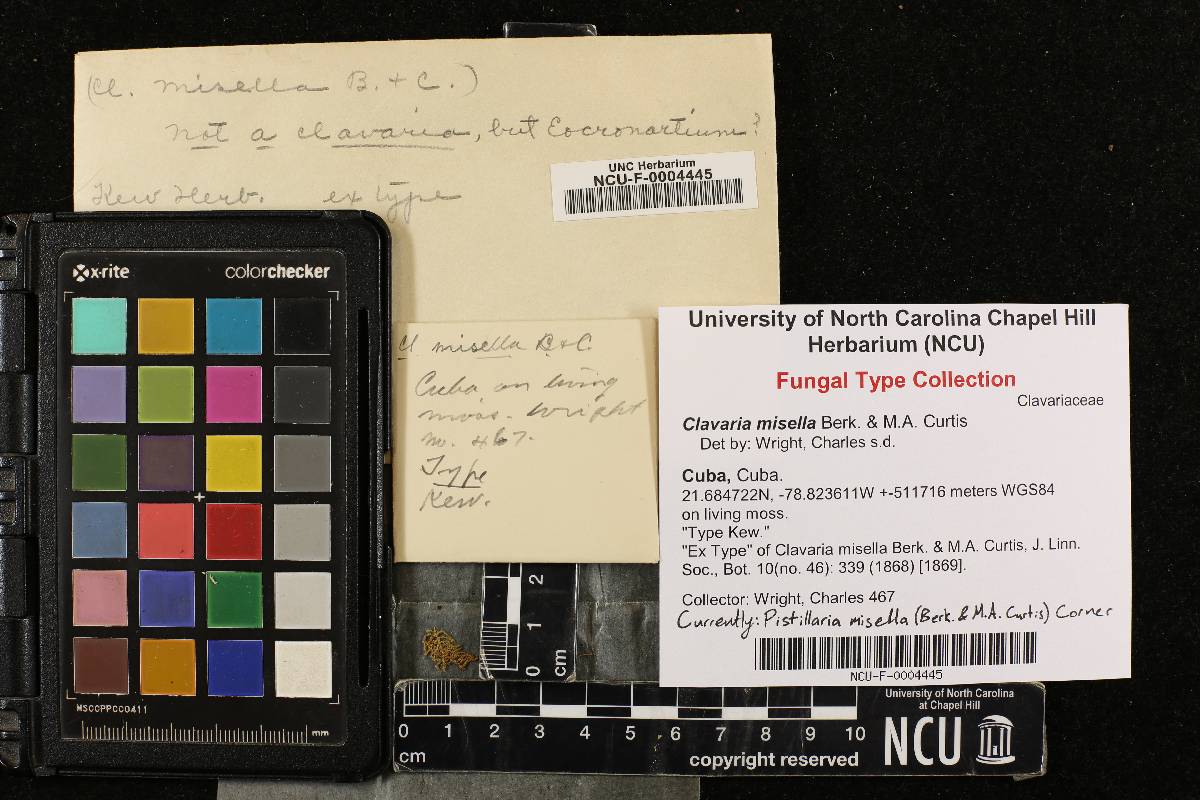 (Cl. misella B. + C.)
Not a clavaria, but Eocronartium?
Kew Herb. ex type
UNC Herbarium
NCU-F-0004445
x-rite
colorchecker
MSCCPPCC0411
mm
Cl misella B & C.
Cuba on living
moss. Wright
no. 467.
Type
Kew.
University of North Carolina Chapel Hill
Herbarium (NCU)
Fungal Type Collection
Clavariaceae
Clavaria misella Berk. & M.A. Curtis
Det by: Wright, Charles s.d.
Cuba, Cuba.
21.684722N, -78.823611W +-511716 meters WGS84
on living moss.
"Type Kew."
"Ex Type" of Clavaria misella Berk. & M.A. Curtis, J. Linn.
Soc., Bot. 10(no. 46): 339 (1868) [1869].
Collector: Wright, Charles 467
Currently: Pistillaria misella (Berk. & M.A. Curtis) Corner
NCU-F-0004445
0 1 2
cm
0 1 2 3 4 5 6 7 8 9 10
cm
copyright reserved
University of North Carolina
at Chapel Hill
NCU